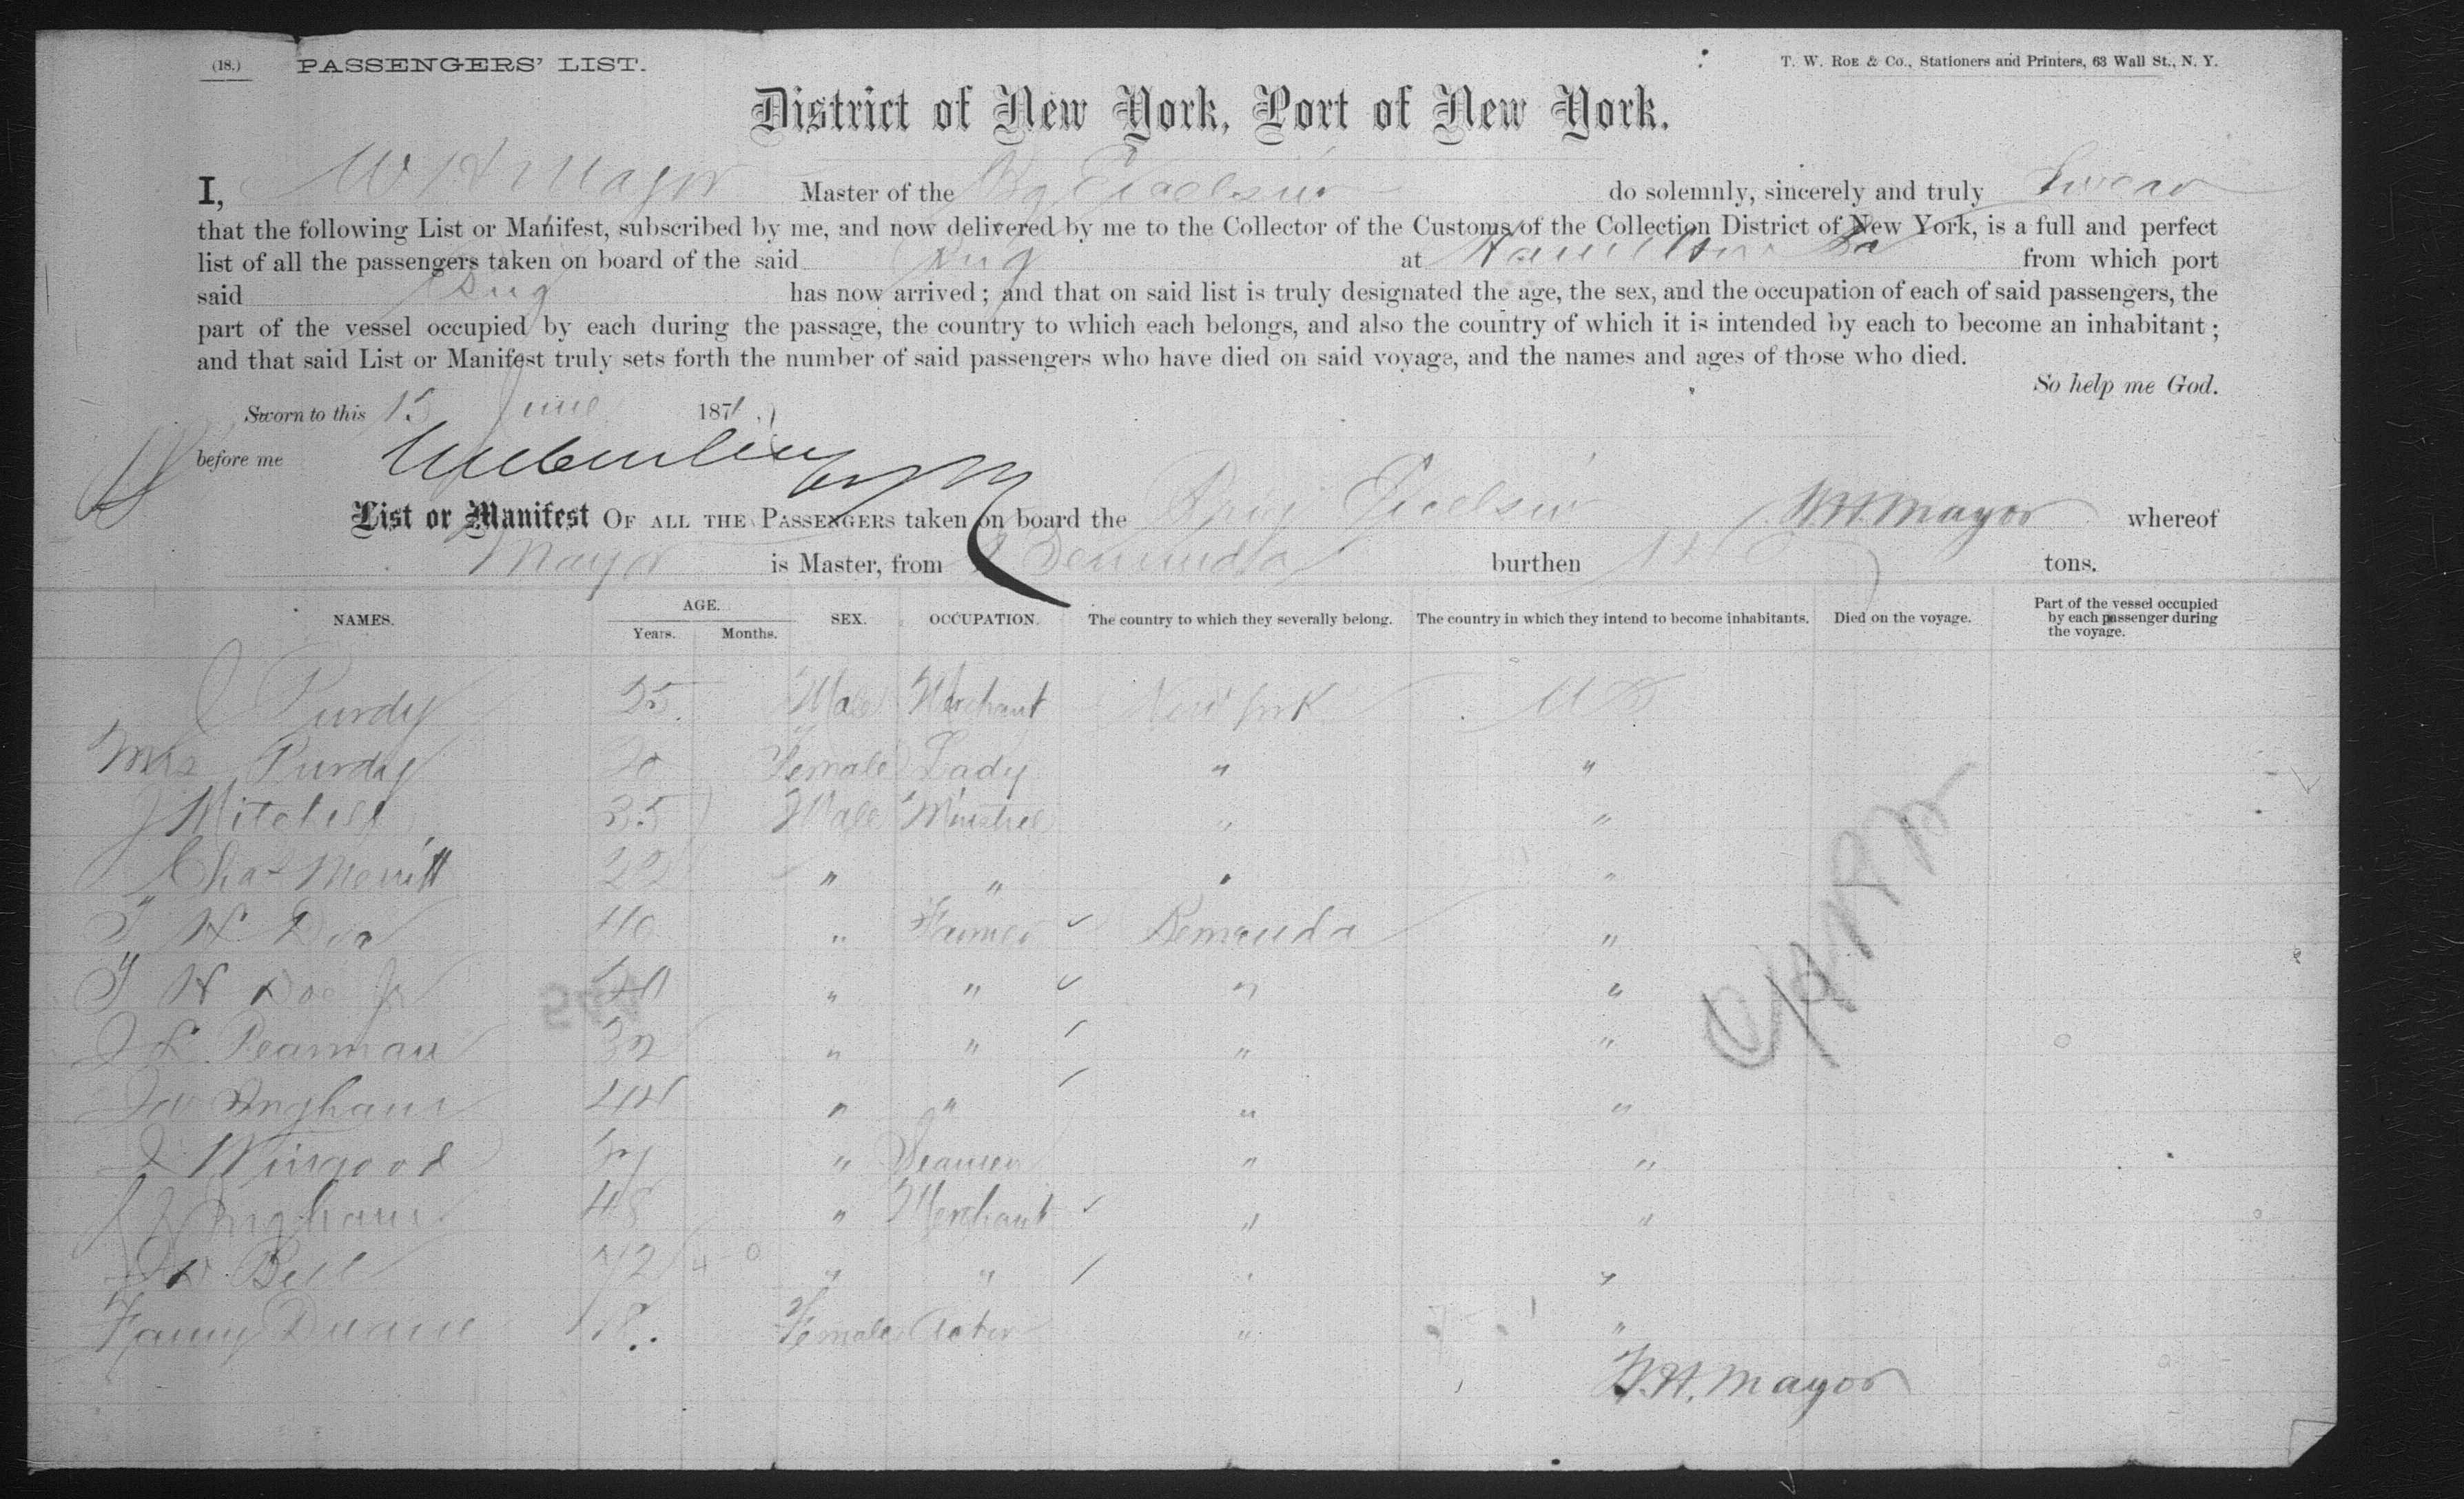 (18.) PASSENGERS' LIST. T. W. Roe & Co., Stationers and Printers, 63 Wall St., N. Y.
District of New York, Port of New York.
I, W H Mayor Master of the Brig Excelsior do solemnly, sincerely and truly Swear
that the following List or Manifest, subscribed by me, and now delivered by me to the Collector of the Customs of the Collection District of New York, is a full and perfect
list of all the passengers taken on board of the said Brig at Hamilton Ba from which port
said Brig has now arrived; and that on said list is truly designated the age, the sex, and the occupation of each of said passengers, the
part of the vessel occupied by each during the passage, the country to which each belongs, and also the country of which it is intended by each to become an inhabitant;
and that said List or Manifest truly sets forth the number of said passengers who have died on said voyage, and the names and ages of those who died.
So help me God.
Sworn to this 15 June 1871
before me
List or Manifest OF ALL THE PASSENGERS taken on board the Brig Excelsior W.H. Mayor whereof
Mayor is Master, from Bermuda burthen tons.
NAMES. AGE. Years. Months. SEX. OCCUPATION. The country to which they severally belong. The country in which they intend to become inhabitants. Died on the voyage. Part of the vessel occupied by each passenger during the voyage.
Purdy 25 Male Merchant New York U S
Mrs Purdy 20 Female Lady " "
J Mitchell 35 Male Minstrel " "
Chas Merritt 22 " " " "
T H Doe 40 " Farmer Bermuda "
T H Doe Jr " " " "
Pearman 32 " " " "
Ingham 44 " " " "
Wingood " Seaman " "
J Ingham 48 " Merchant " "
Bell 42 " " " "
Fanny Duane 18 Female Actor " "
W.H. Mayor